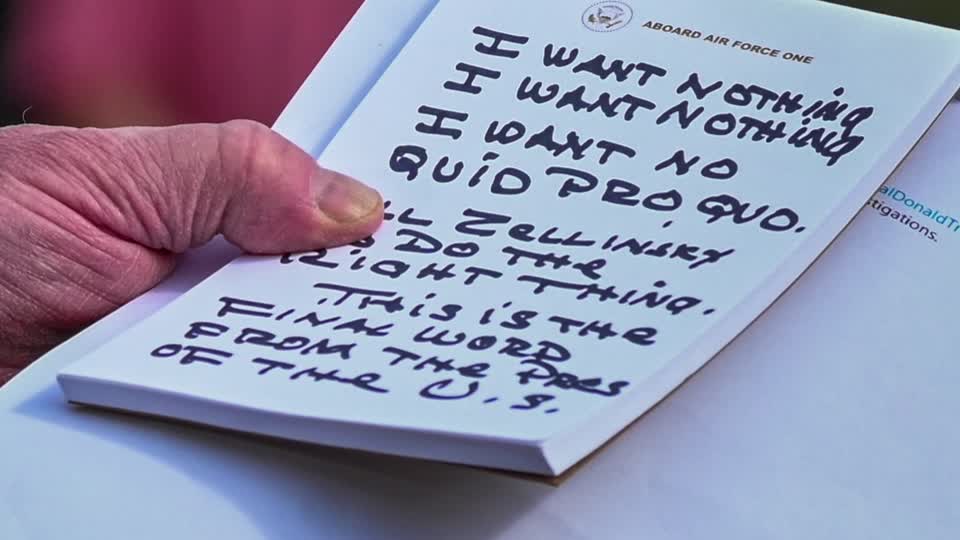 ABOARD AIR FORCE ONE
I WANT NOTHING
I WANT NOTHING
I WANT NO
QUID PRO QUO.
LL ZELLINSKY
O DO THE
RIGHT THING.
THIS IS THE
FINAL WORD
FROM THE PRES
OF THE U.S.
alDonaldTr
stigations.